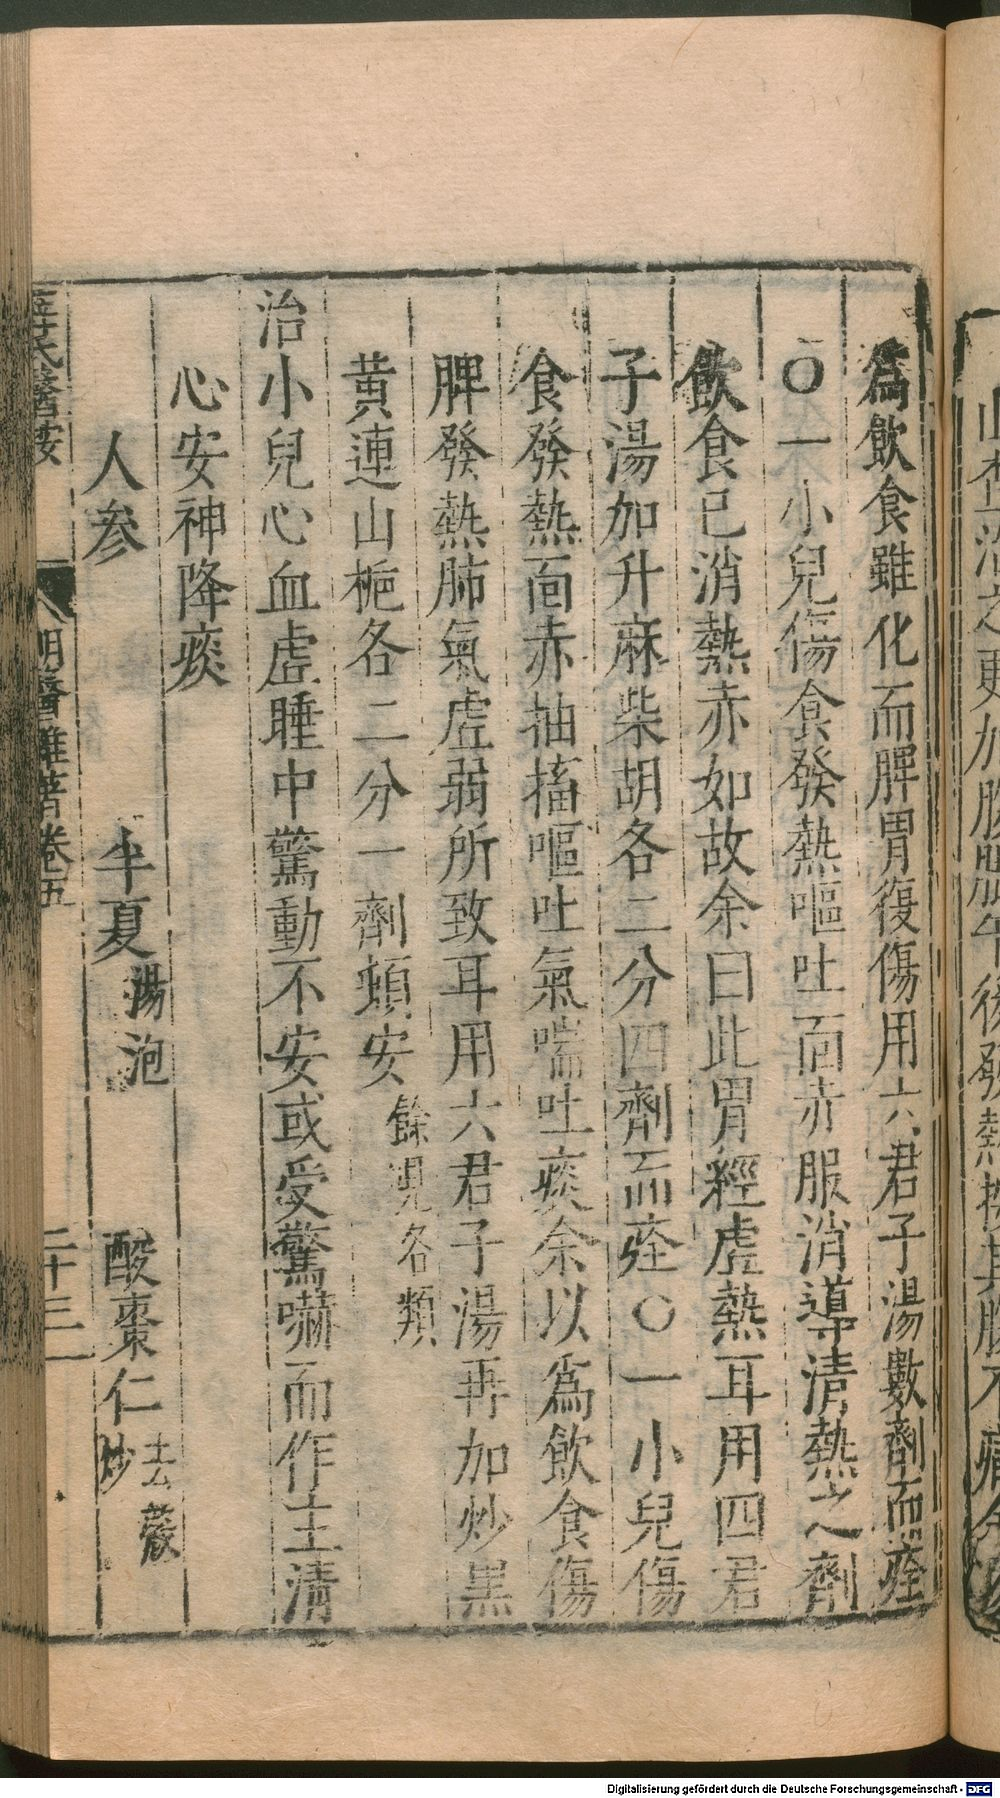 爲飲食雖化而脾胃復傷用六君子湯數劑而痊
○一小兒傷食發熱嘔吐面赤服消導清熱之劑
飲食已消熱赤如故余曰此胃經虛熱耳用四君
子湯加升麻柴胡各二分四劑而痊○一小兒傷
食發熱面赤抽搐嘔吐氣喘吐痰余以爲飲食傷
脾發熱肺氣虛弱所致耳用六君子湯再加炒黑
黄連山梔各二分一劑頓安餘見各類
治小兒心血虛睡中驚動不安或受驚嚇而作主清
心安神降痰
人參 半夏湯泡 酸棗仁去殼炒
薛氏醫按 明醫雜著卷五 二十三
山查治之更加 午後發熱按其腹不痛余以
Digitalisierung gefördert durch die Deutsche Forschungsgemeinschaft - DFG